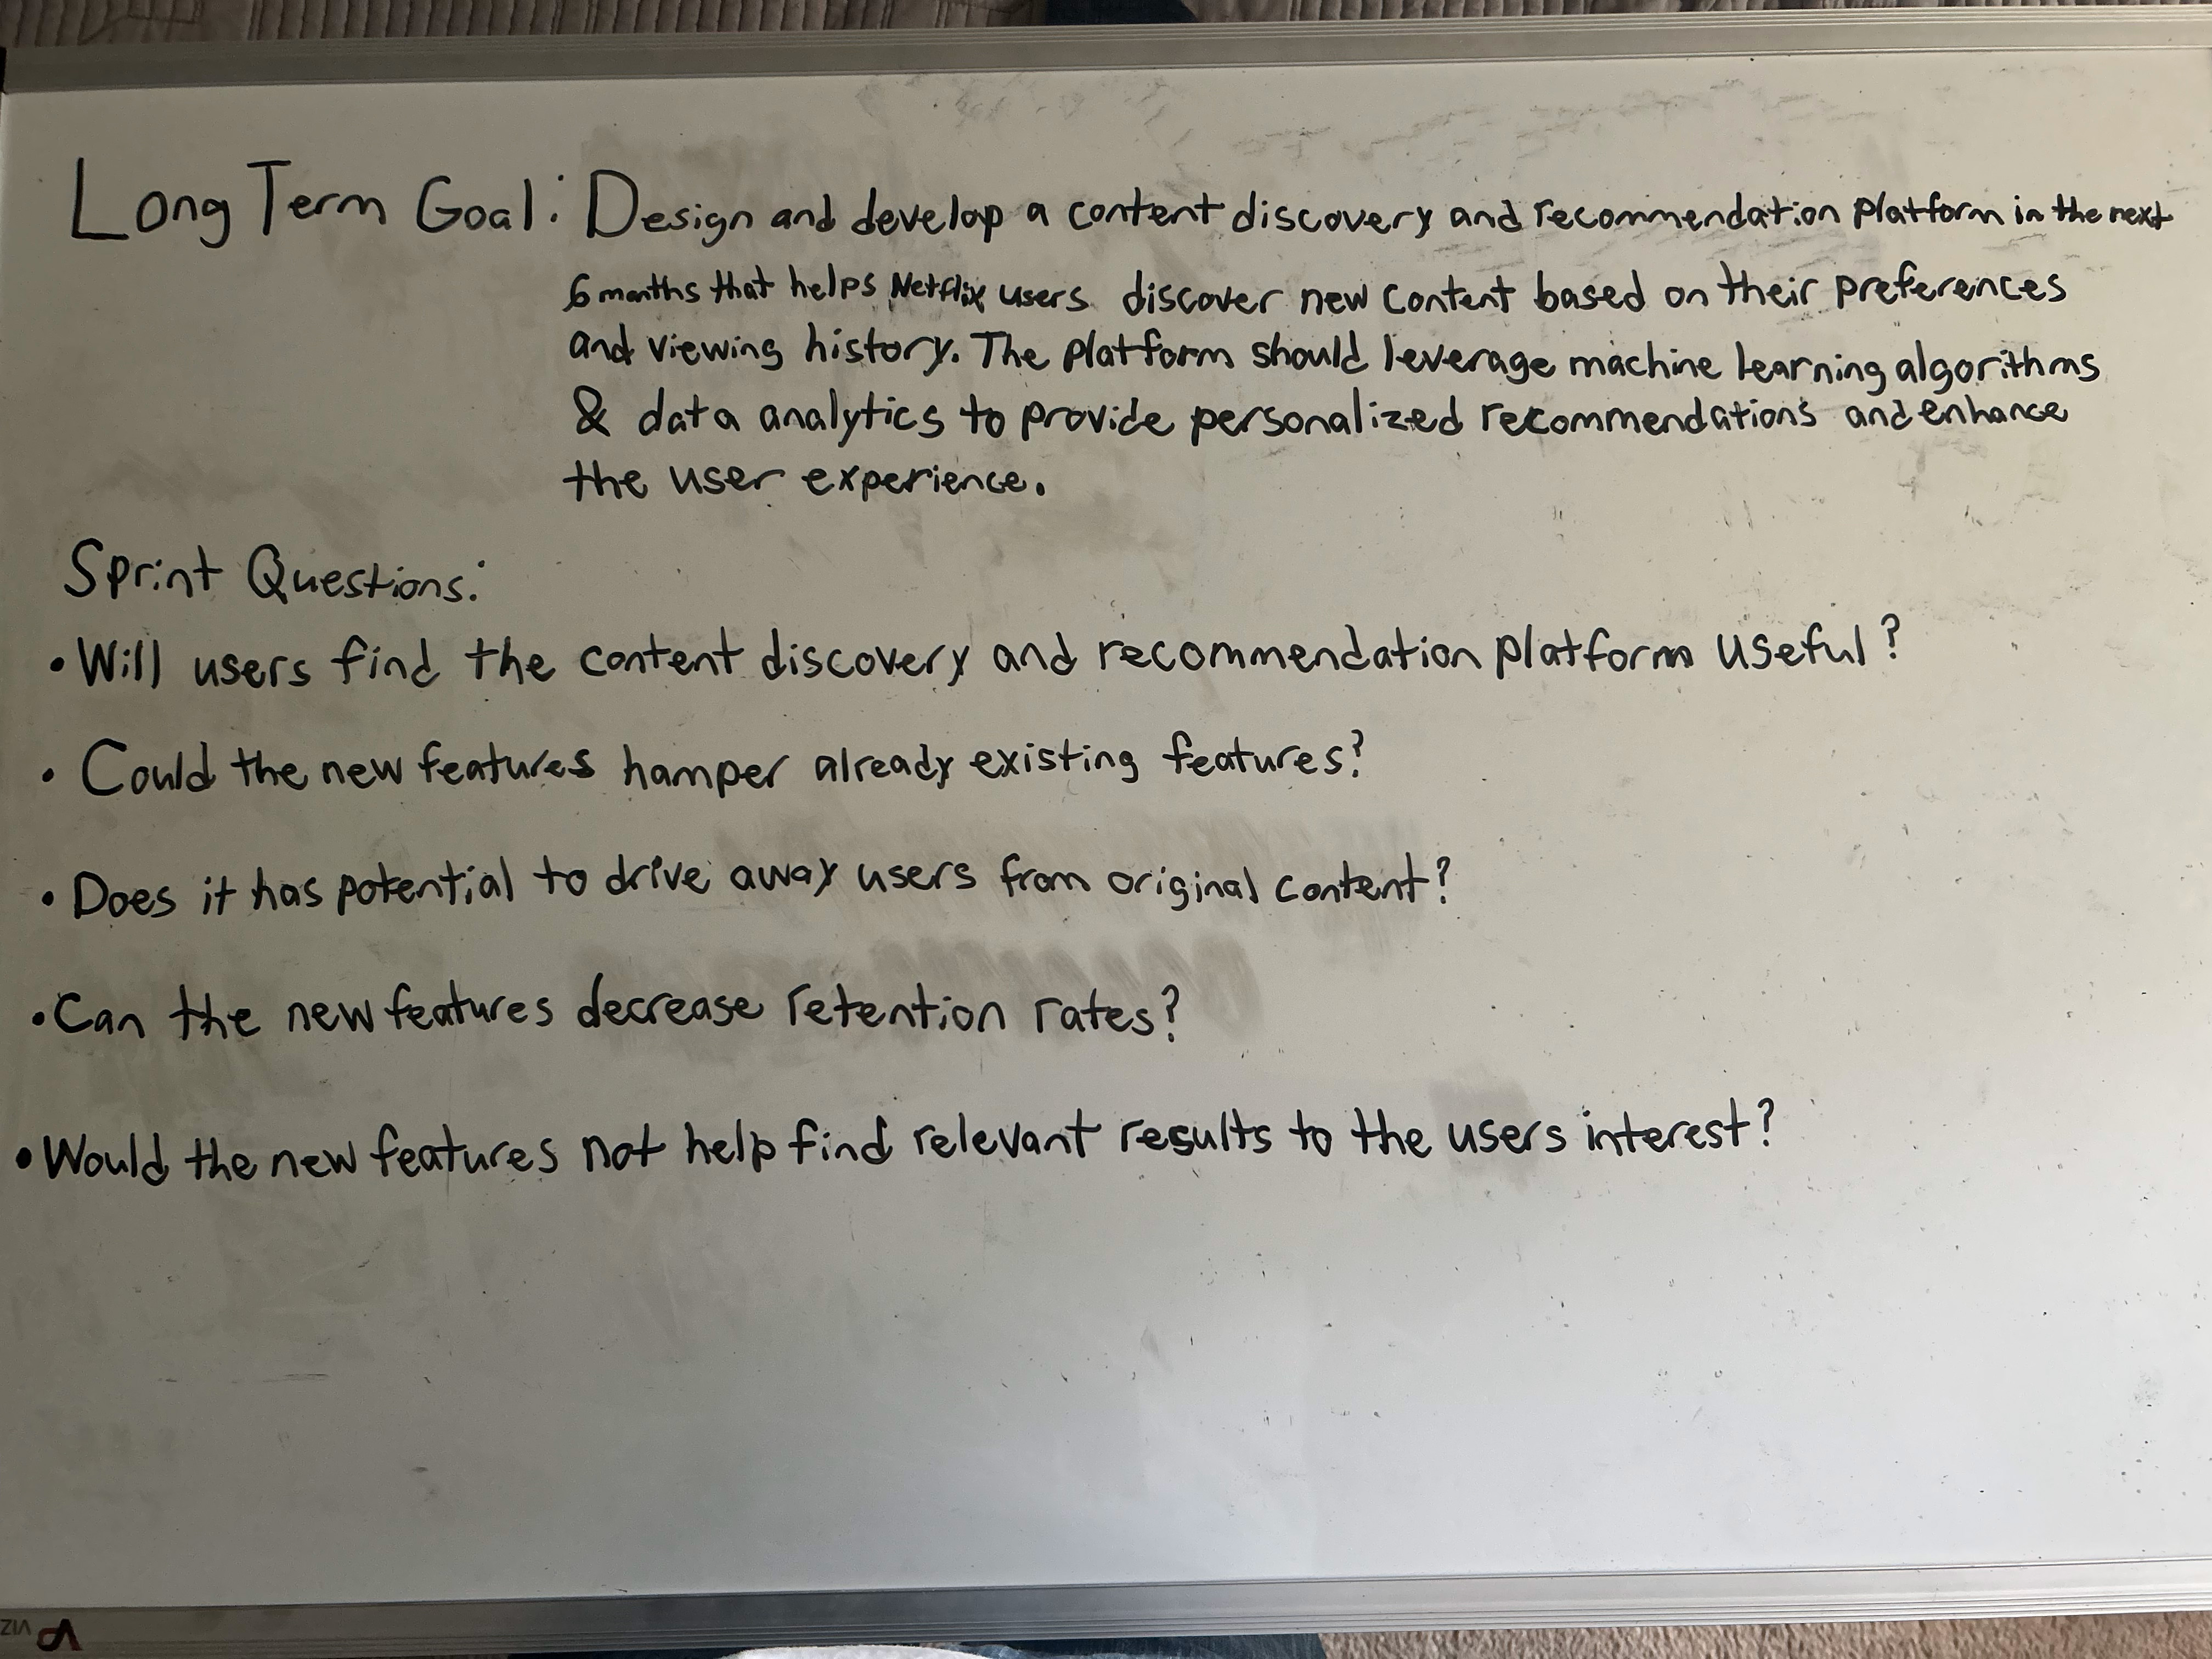 Long Term Goal: Design and develop a content discovery and recommendation platform in the next
6 months that helps Netflix users discover new content based on their preferences
and viewing history. The platform should leverage machine learning algorithms
& data analytics to provide personalized recommendations and enhance
the user experience.
Sprint Questions:
• Will users find the content discovery and recommendation platform useful?
• Could the new features hamper already existing features?
• Does it has potential to drive away users from original content?
• Can the new features decrease retention rates?
• Would the new features not help find relevant results to the users interest?